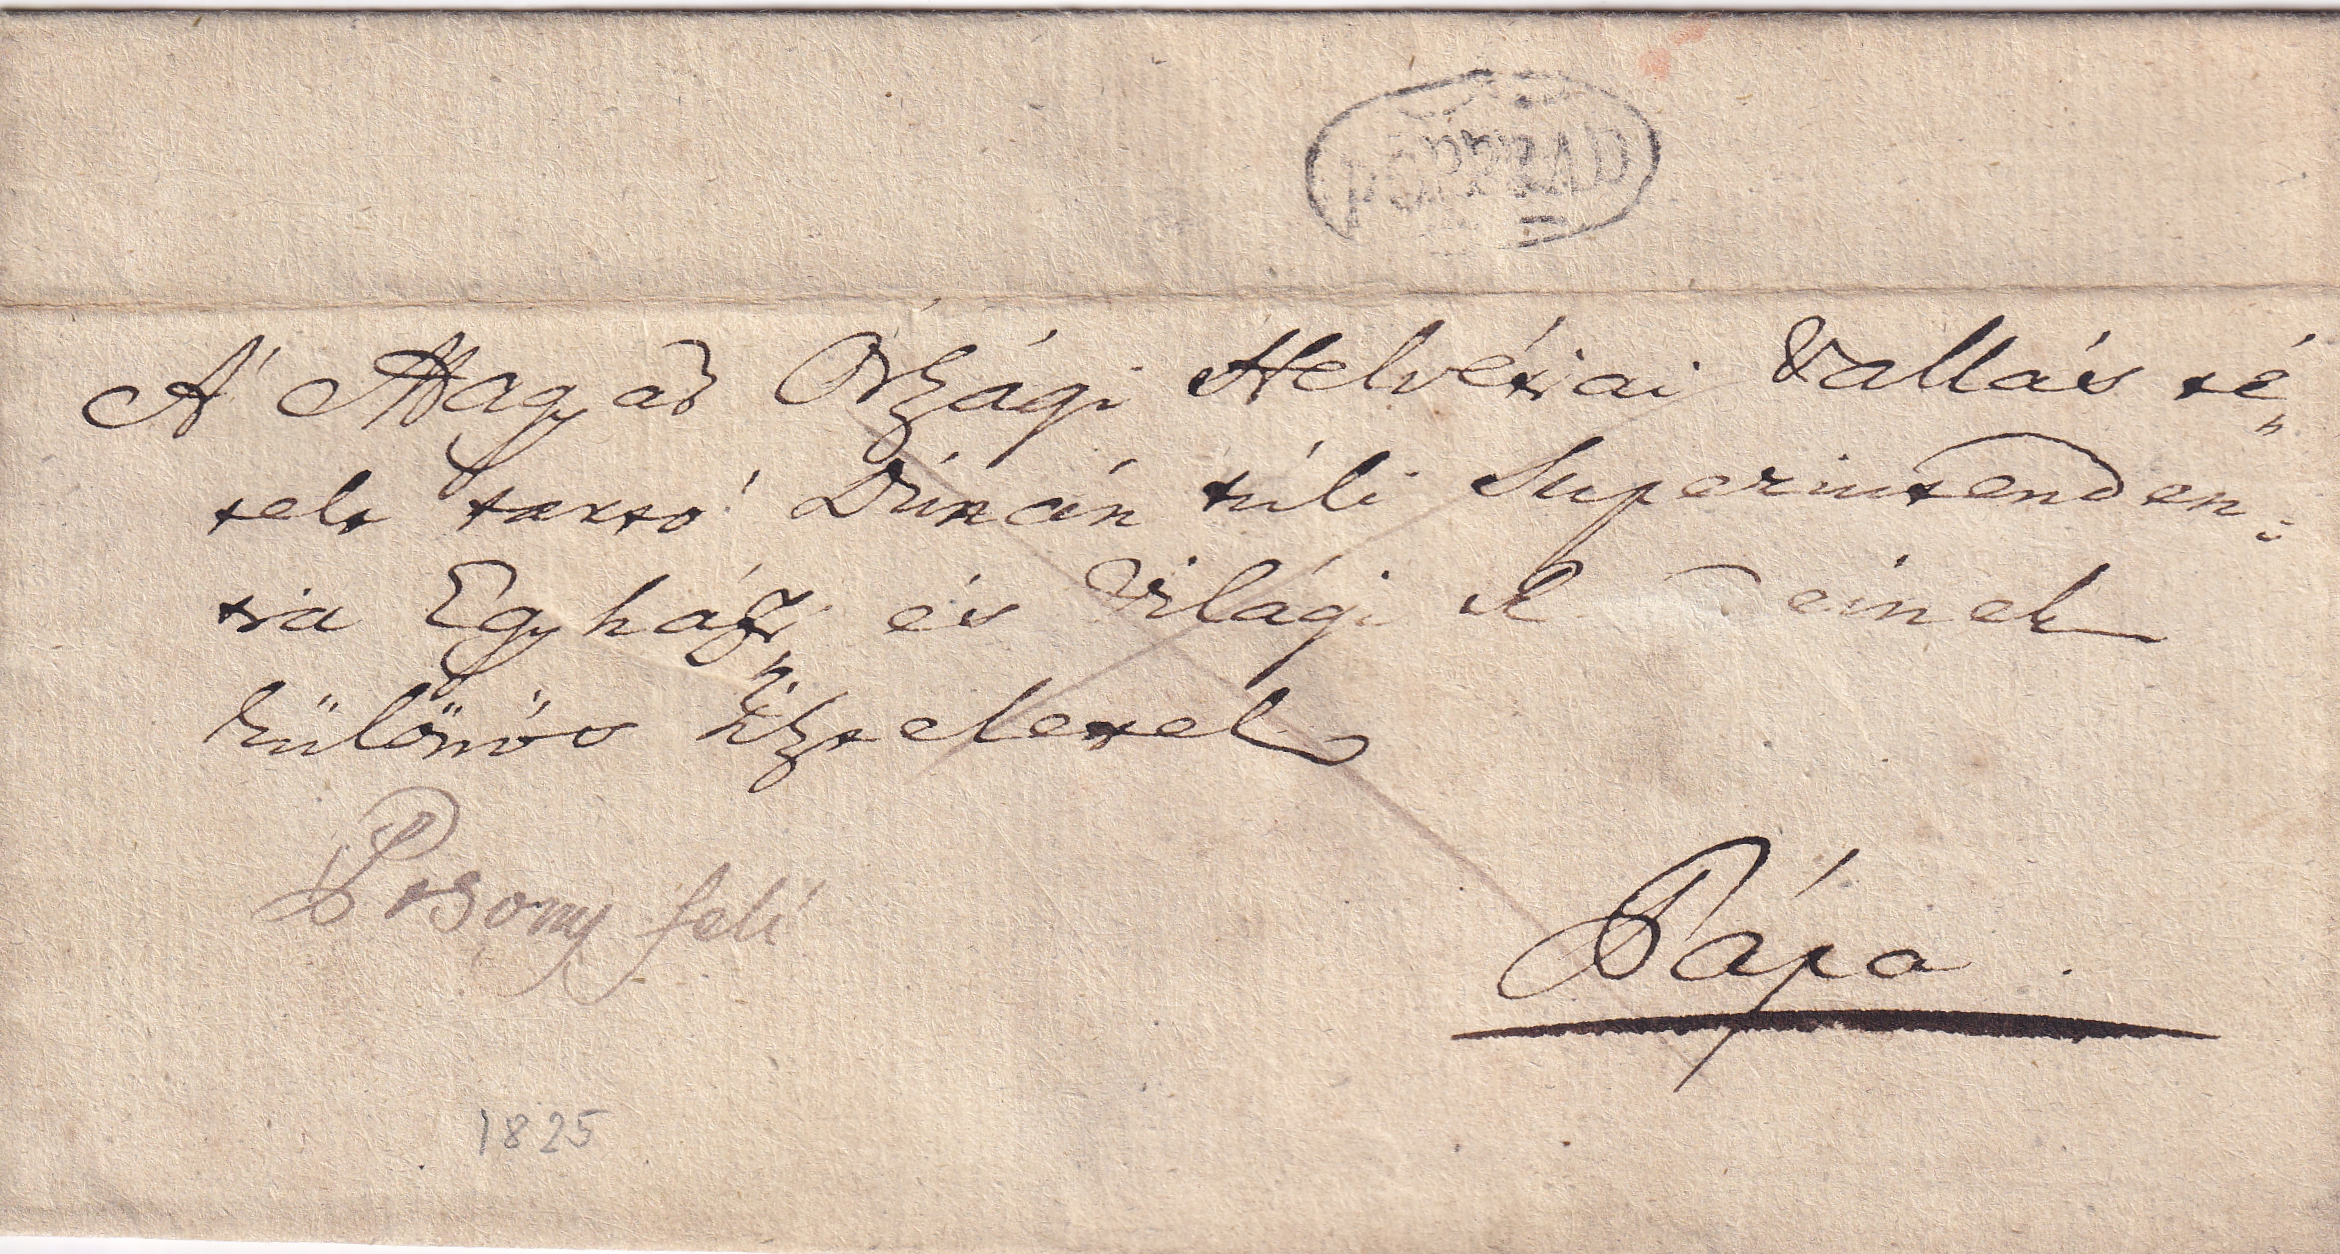 POPRAD
A' Magyar Országi Helvétziai Vallás té„
telt tartó Dúnán túli Superintenden„
tia Egyházi és Világi einek
különös tisztelettel
Posony felé
Pápa.
1825